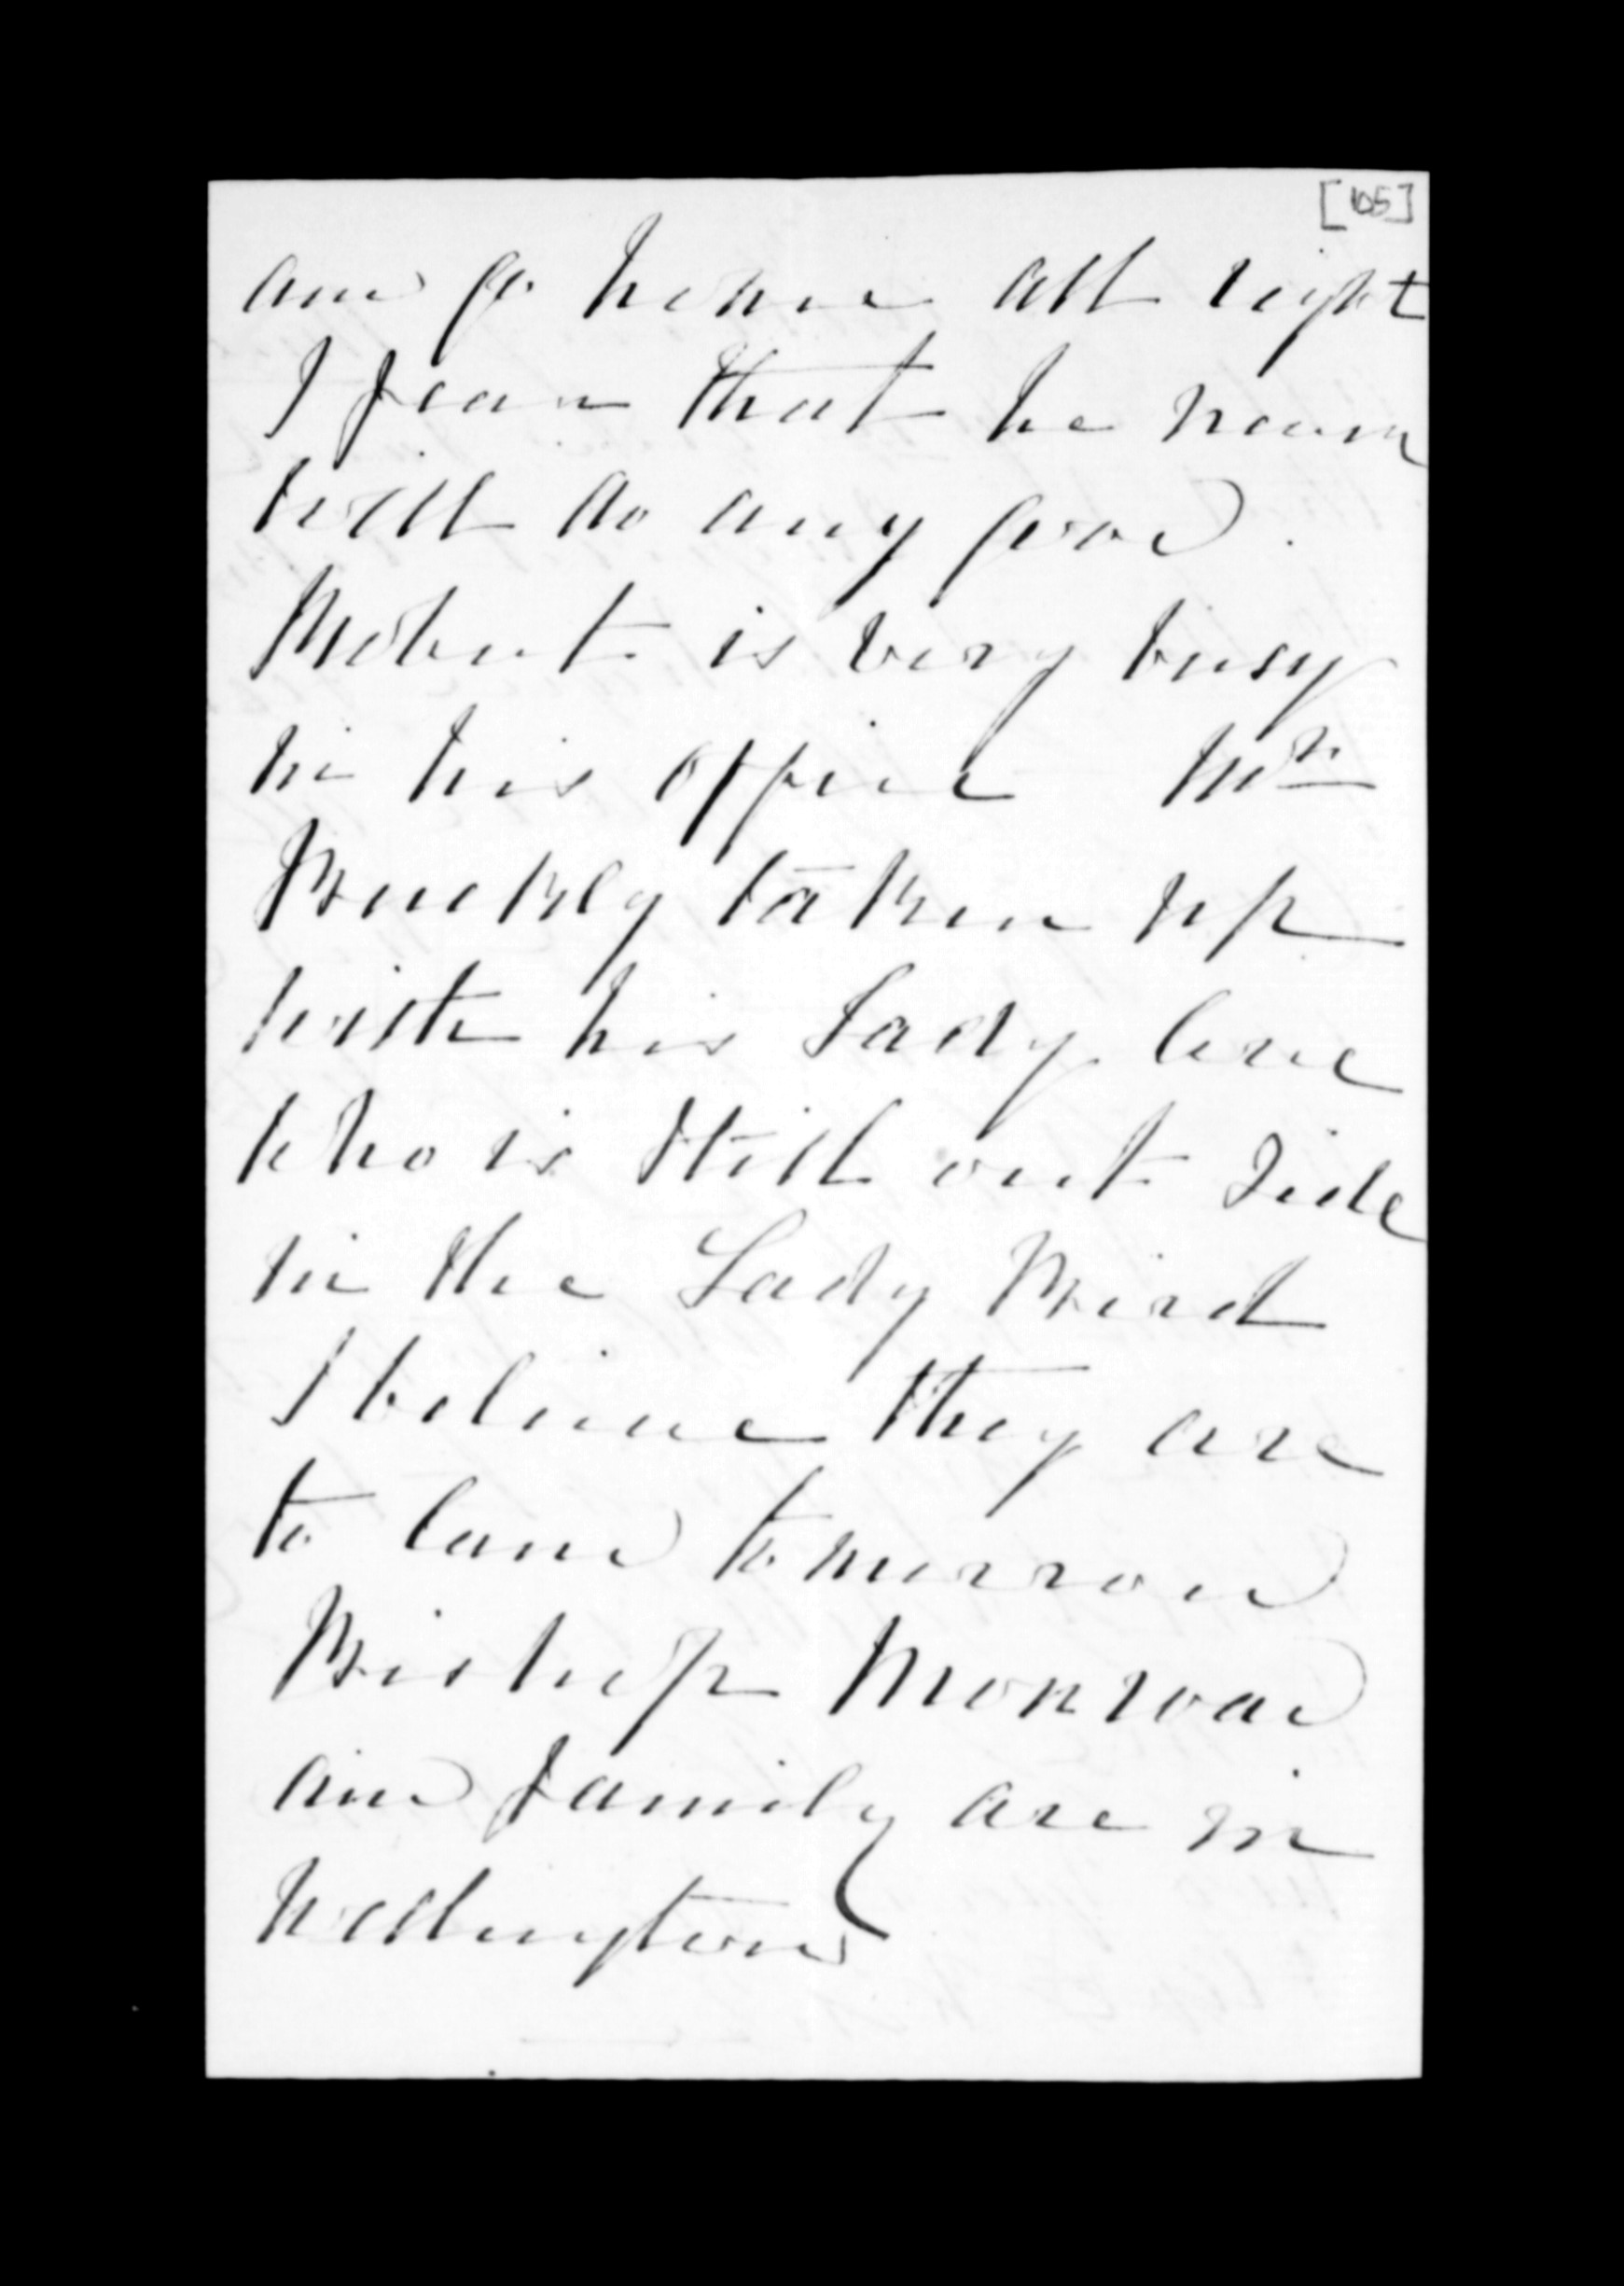 [105]
and go home all right
I fear that he never
will do any good.
is very busy
in his office Mr
Buckly taken up
with his Lady love
who is still out side
in the Lady Bird
I believe they are
to land tomorrow
Bishop Monroad
and family are in
Wellington